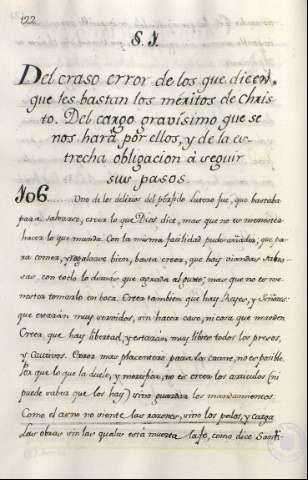 122
§. I.
Del craso error de los que dicen,
que les bastan los méritos de Chris
to. Del cargo gravísimo que se
nos hará por ellos, y de la es-
trecha obligacion á seguir
sus pasos.
106. Uno de los delirios del pérfido Lutero fue, que bastaba
para salvarse, creer lo que Dios dice, mas que no es menester
hacer lo que manda. Con la misma facilidad pudo añadir, que pa
ra comer, y regalarse bien, basta creer, que hay viandas
sas, con todo lo demás que agrada al gusto; mas que no es me
nester tomarlo en boca. Creer tambien que hay Reyes, y Señores
que estarán muy servidos, sin hacer caso, ni cosa que manden.
Creer, que hay libertad, y estarán muy libres todos los presos,
y Cautivos. Creer mas placentero para la carne, no es posible.
Por que lo que la duele, y mortifica, no es creer los articulos (ni
puede saber que los hay) sino guardar los mandamientos.
Como el asno no siente las razones, sino los palos, y carga
Las obras sin las quales está muerta la fe, como dice Santi